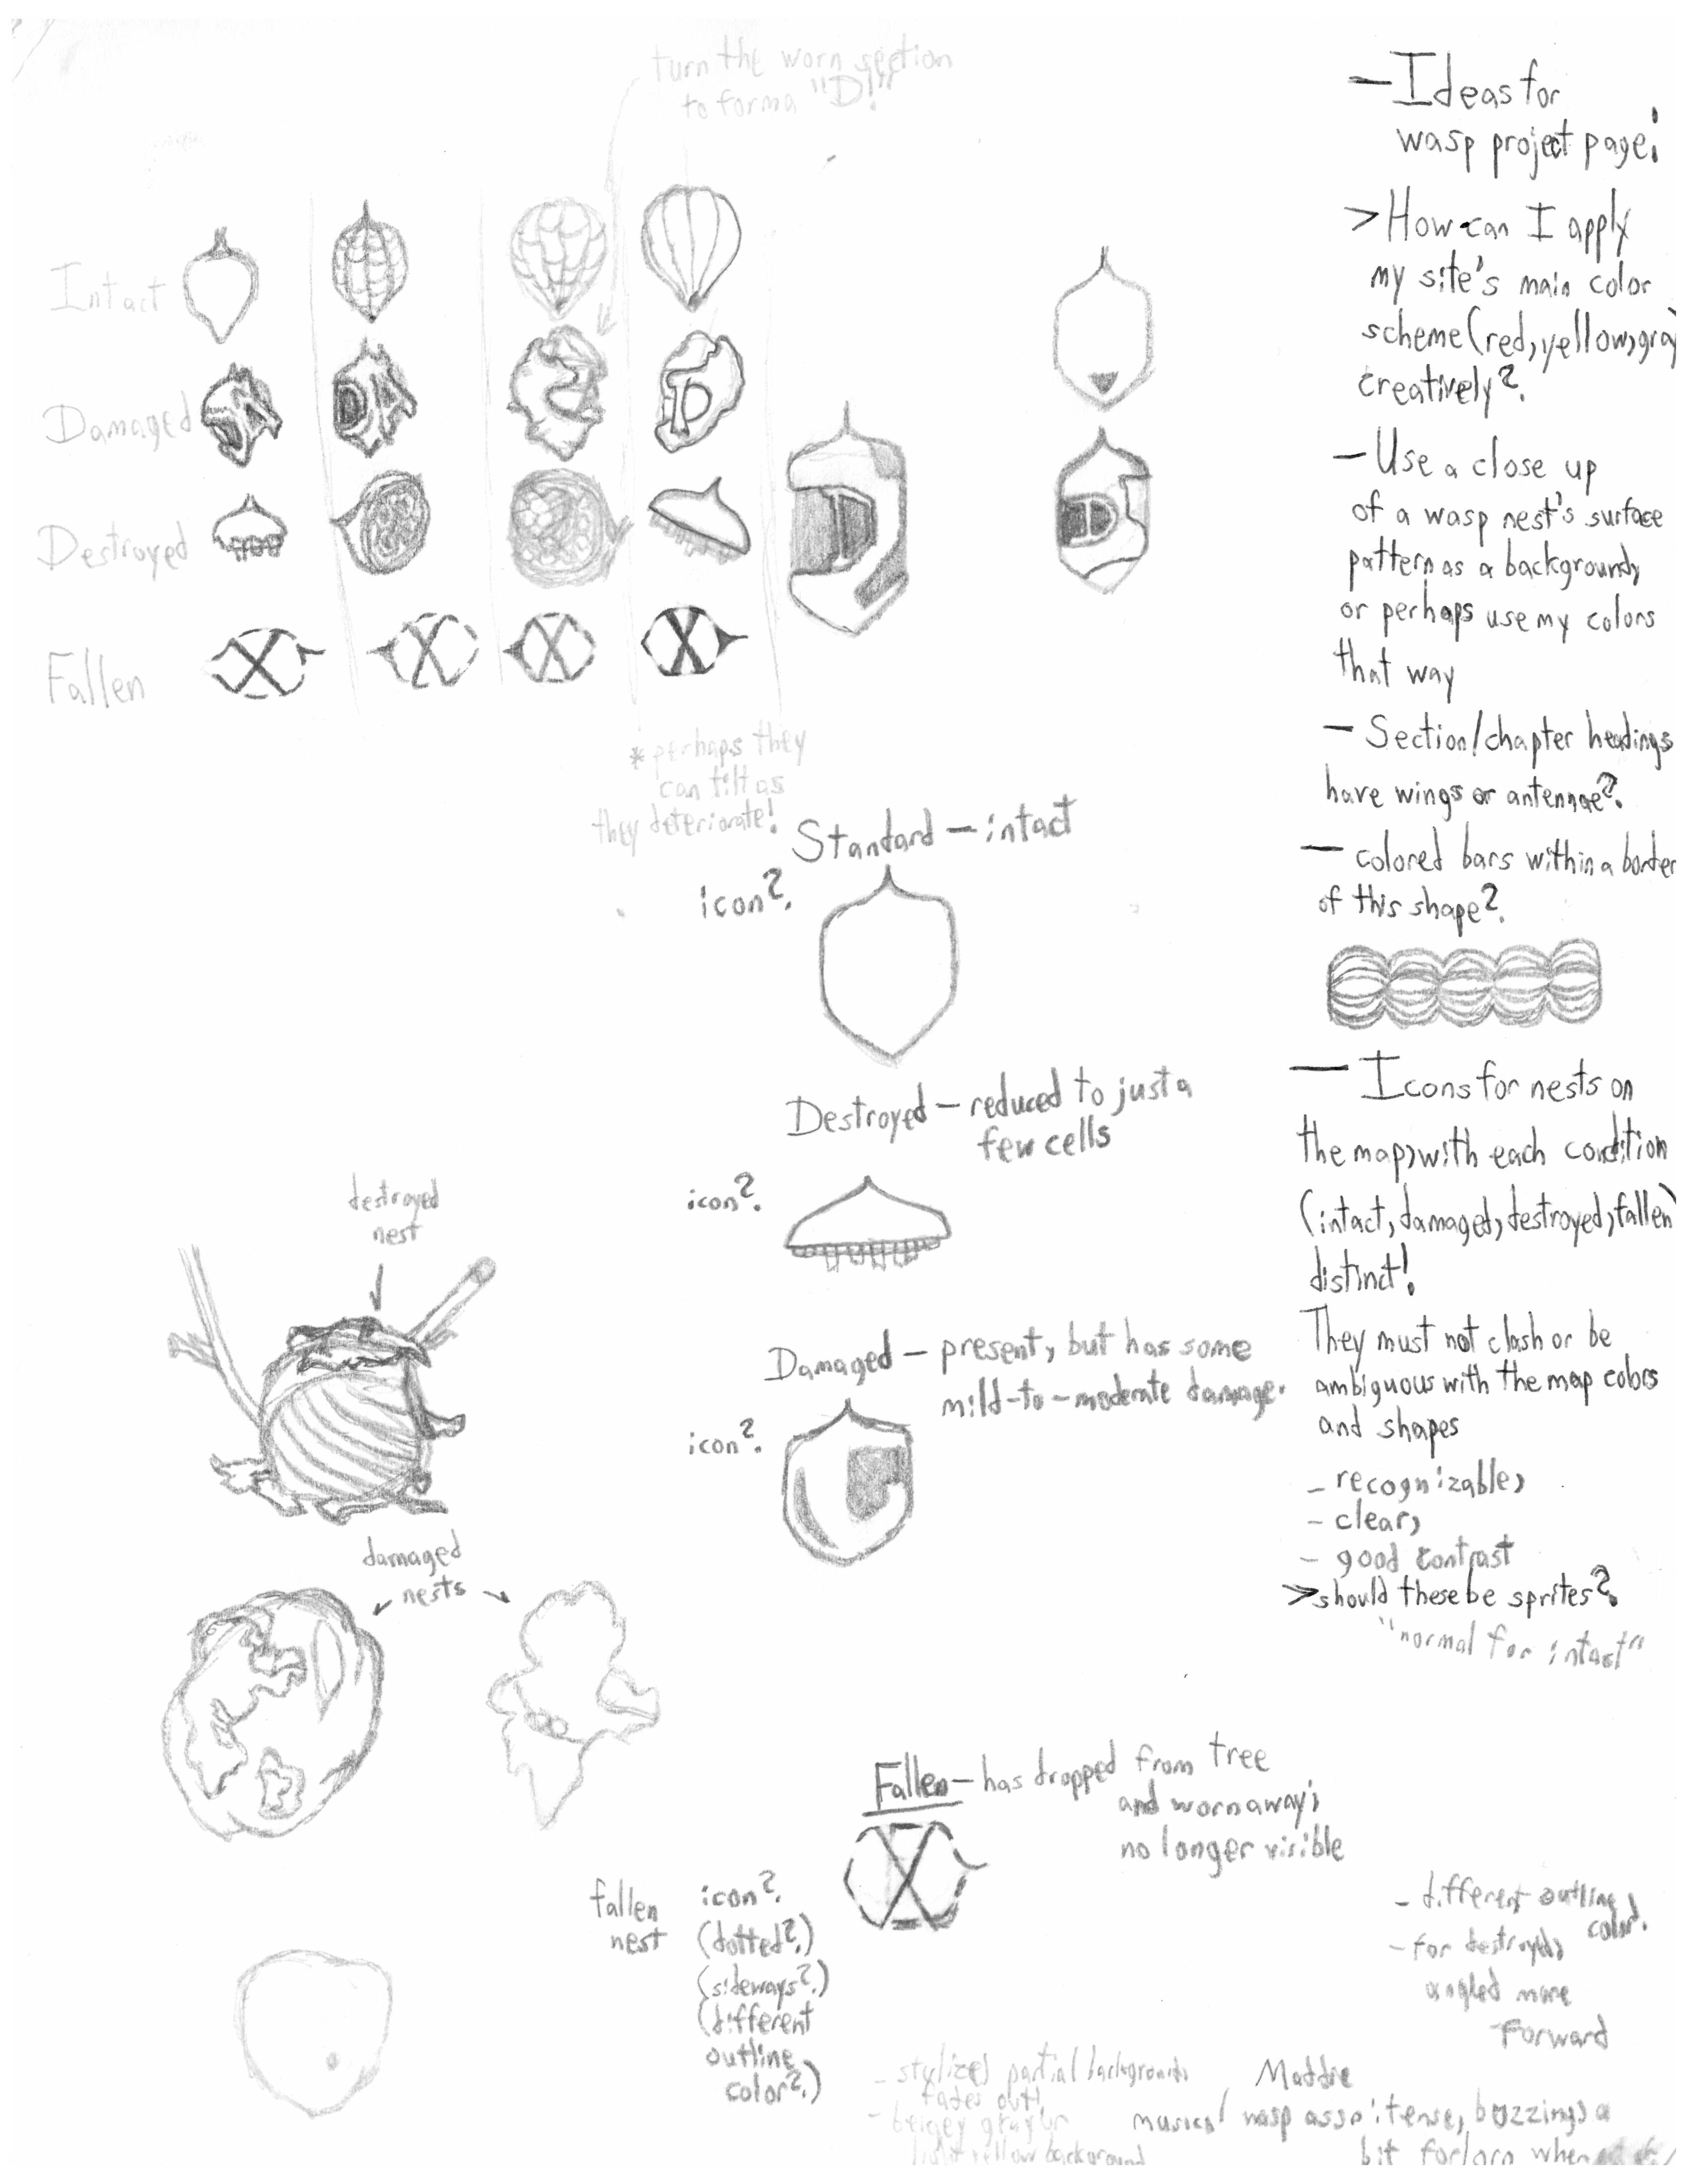 turn the worn section
to form a "D!"
Intact
Damaged
Destroyed
Fallen
*perhaps they
can tilt as
they deteriorate!
Standard — intact
icon?
Destroyed — reduced to just a
few cells
icon?
Damaged — present, but has some
mild-to-moderate damage.
icon?
destroyed
nest
damaged
nests
Fallen — has dropped from tree
and worn away;
no longer visible
fallen
nest
icon?
(dotted?)
(sideways?)
(different
outline
color?)
— Ideas for
wasp project page:
> How can I apply
my site's main color
scheme (red, yellow, gray
creatively?
— Use a close up
of a wasp nest's surface
pattern as a background,
or perhaps use my colors
that way
— Section/chapter headings
have wings or antennae?
— colored bars within a border
of this shape?
— Icons for nests on
the map, with each condition
(intact, damaged, destroyed, fallen)
distinct!
They must not clash or be
ambiguous with the map colors
and shapes
- recognizable,
- clear,
- good contrast
> should these be sprites?
"normal for intact"
- different outline
color.
- for destroyed,
angled more
forward
- stylized partial background,
fades out!
- beigey gray
light yellow background
Maddie
musical wasp : tense, buzzing, a
bit forlorn when